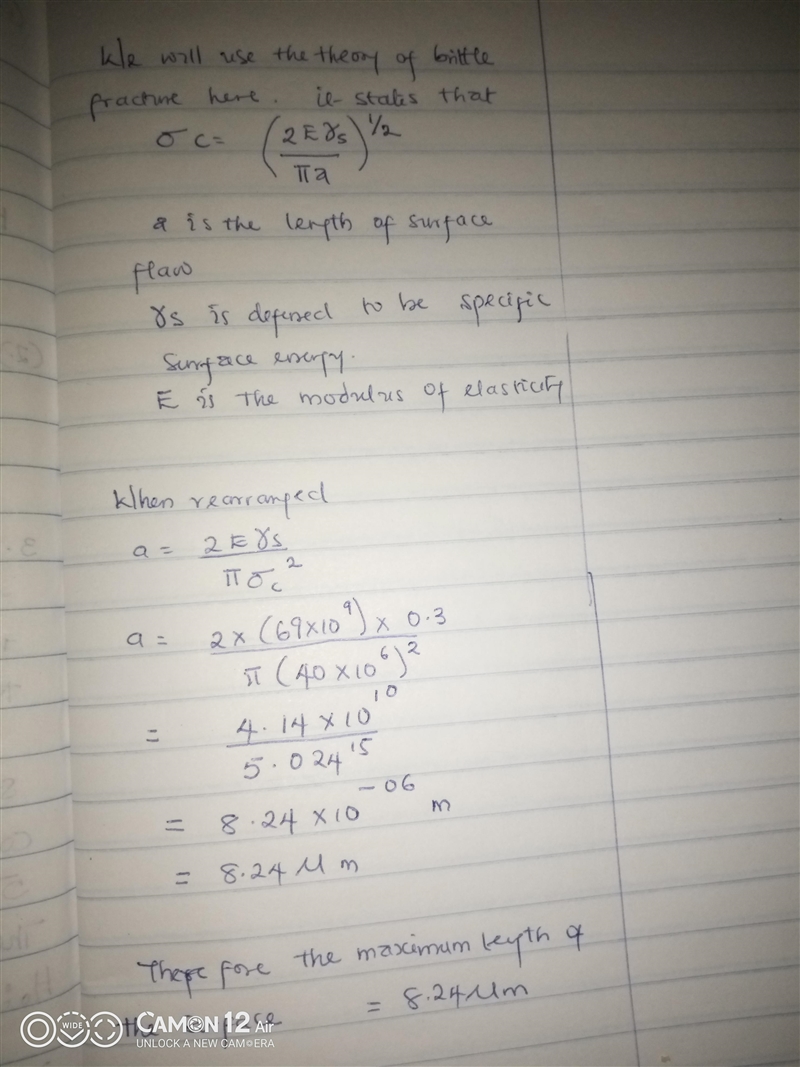 We will use the theory of brittle
fracture here. ie states that
σ c = (2 E γs / π a)^1/2
a is the length of surface
flaw
γs is defined to be specific
Surface energy.
E is the modulus of elasticity
When rearranged
a = 2 E γs / π σc^2
a = 2 × (69×10^9) × 0.3 / π (40 × 10^6)^2
= 4.14 × 10^10 / 5.024^15
= 8.24 × 10^-06 m
= 8.24 μ m
There fore the maximum length of
the = 8.24 μm
WIDE CAMON 12 Air
UNLOCK A NEW CAMERA